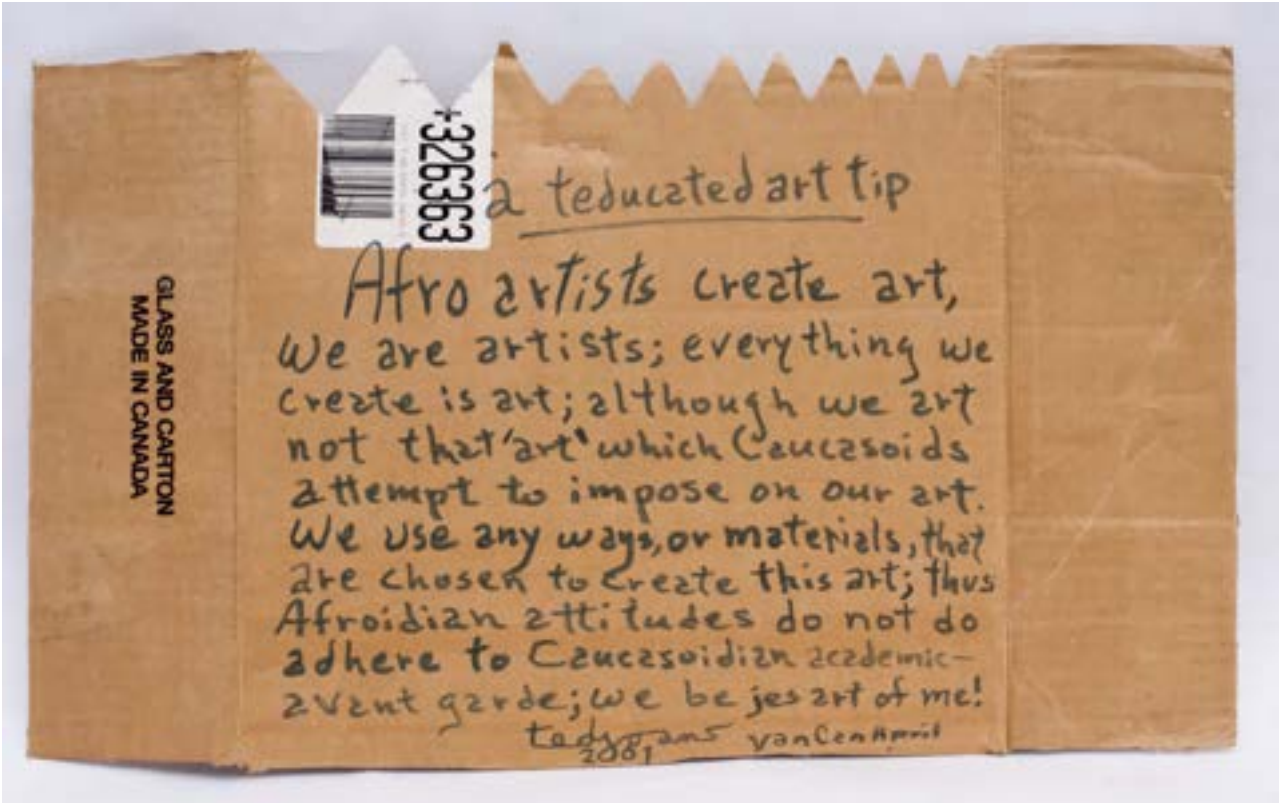 +326363
GLASS AND CARTON
MADE IN CANADA
a teducated art tip
Afro artists create art,
we are artists; everything we
create is art; although we art
not that 'art' which Caucasoids
attempt to impose on our art.
We use any ways, or materials, that
are chosen to create this art; thus
Afroidian attitudes do not do
adhere to Caucasoidian academic-
avant garde; we be jes art of me!
ted joans vanCen April
2001